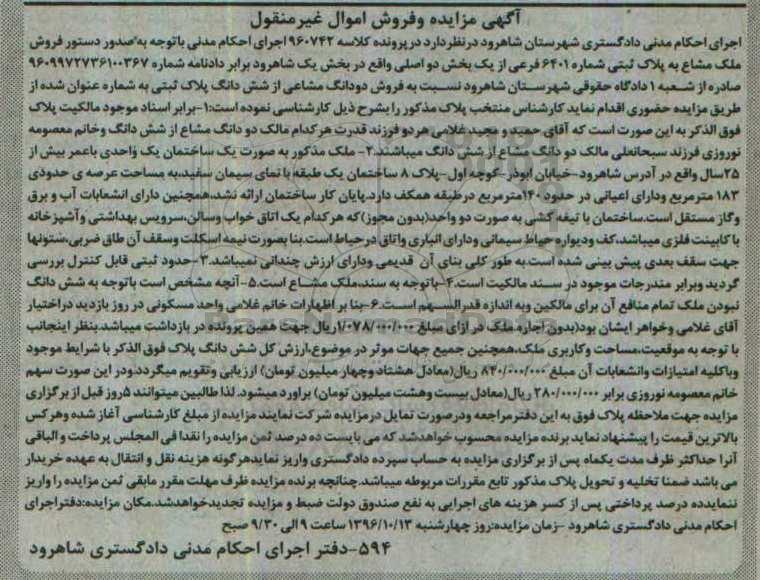 آگهی مزایده وفروش اموال غیرمنقول
اجرای احکام مدنی دادگستری شهرستان شاهرود درنظردارد درپرونده کلاسه ۹۶۰۷۴۲ اجرای احکام مدنی باتوجه به صدور دستور فروش
ملک مشاع به پلاک ثبتی شماره ۶۴۰۱ فرعی از یک بخش دو اصلی واقع در بخش یک شاهرود برابر دادنامه شماره ۹۶۰۹۹۷۲۷۳۶۱۰۰۳۶۷
صادره از شعبه ۱ دادگاه حقوقی شهرستان شاهرود نسبت به فروش دودانگ مشاعی از شش دانگ پلاک ثبتی به شماره عنوان شده از
طریق مزایده حضوری اقدام نماید کارشناس منتخب پلاک مذکور را بشرح ذیل کارشناسی نموده است:۱-برابر اسناد موجود مالکیت پلاک
فوق الذکر به این صورت است که آقای حمید و مجید غلامی هر دو فرزند قدرت هرکدام مالک دو دانگ مشاع از شش دانگ وخانم معصومه
نوروزی فرزند سبحانعلی مالک دو دانگ مشاع از شش دانگ میباشند.۲- ملک مذکور به صورت یک ساختمان یک واحدی باعمر بیش از
۲۵سال واقع در آدرس شاهرود-خیابان ابوذر-کوچه اول-پلاک ۸ ساختمان یک طبقه با نمای سیمان سفید،به مساحت عرصه ی حدودی
۱۸۳ مترمربع ودارای اعیانی در حدود ۱۴۰مترمربع درطبقه همکف دارد.پایان کار ساختمان ارائه نشد،همچنین دارای انشعابات آب و برق
وگاز مستقل است.ساختمان با تیغه کشی به صورت دو واحد(بدون مجوز)که هرکدام یک اتاق خواب وسالن،سرویس بهداشتی وآشپزخانه
با کابینت فلزی میباشد،کف ودیواره حیاط سیمانی ودارای انباری واتاق درحیاط است.بنا بصورت نیمه اسکلت وسقف آن طاق ضربی،ستونها
جهت سقف بعدی پیش بینی شده است.به طور کلی بنای آن قدیمی ودارای ارزش چندانی نمیباشد.۳-حدود ثبتی قابل کنترل بررسی
گردید وبرابر مندرجات موجود در سند مالکیت است.۴-باتوجه به سند،ملک مشاع است.۵-آنچه مشخص است باتوجه به شش دانگ
نبودن ملک تمام منافع آن برای مالکین وبه اندازه قدرالسهم است.۶-بنا بر اظهارات خانم غلامی واحد مسکونی در روز بازدید دراختیار
آقای غلامی وخواهر ایشان بود(بدون اجاره ملک در ازای مبلغ ۱/۰۷۸/۰۰۰/۰۰۰ریال جهت همین پرونده در بازداشت میباشد.بنظر اینجانب
با توجه به موقعیت،مساحت وکاربری ملک،همچنین جمیع جهات موثر در موضوع،ارزش کل شش دانگ پلاک فوق الذکر با شرایط موجود
وباکلیه امتیازات وانشعابات آن مبلغ ۸۴۰/۰۰۰/۰۰۰ ریال(معادل هشتاد وچهار میلیون تومان) ارزیابی وتقویم میگردد.ودر این صورت سهم
خانم معصومه نوروزی برابر ۲۸۰/۰۰۰/۰۰۰ ریال(معادل بیست وهشت میلیون تومان) براورد میشود. لذا طالبین میتوانند ۵روز قبل از برگزاری
مزایده جهت ملاحظه پلاک فوق به این دفترمراجعه ودرصورت تمایل درمزایده شرکت نمایند مزایده از مبلغ کارشناسی آغاز شده وهرکس
بالاترین قیمت را پیشنهاد نماید برنده مزایده محسوب خواهدشد که می بایست ده درصد ثمن مزایده را نقدا فی المجلس پرداخت و الباقی
آنرا حداکثر ظرف مدت یکماه پس از برگزاری مزایده به حساب سپرده دادگستری واریز نمایدهرگونه هزینه نقل و انتقال به عهده خریدار
می باشد ضمنا تخلیه و تحویل پلاک مذکور تابع مقررات مربوطه میباشد.چنانچه برنده مزایده ظرف مهلت مقرر مابقی ثمن مزایده را واریز
ننمایدده درصد پرداختی پس از کسر هزینه های اجرایی به نفع صندوق دولت ضبط و مزایده تجدیدخواهدشد.مکان مزایده:دفتراجرای
احکام مدنی دادگستری شاهرود -زمان مزایده:روز چهارشنبه ۱۳۹۶/۱۰/۱۳ ساعت ۹ الی ۹/۳۰ صبح
۵۹۴-دفتر اجرای احکام مدنی دادگستری شاهرود